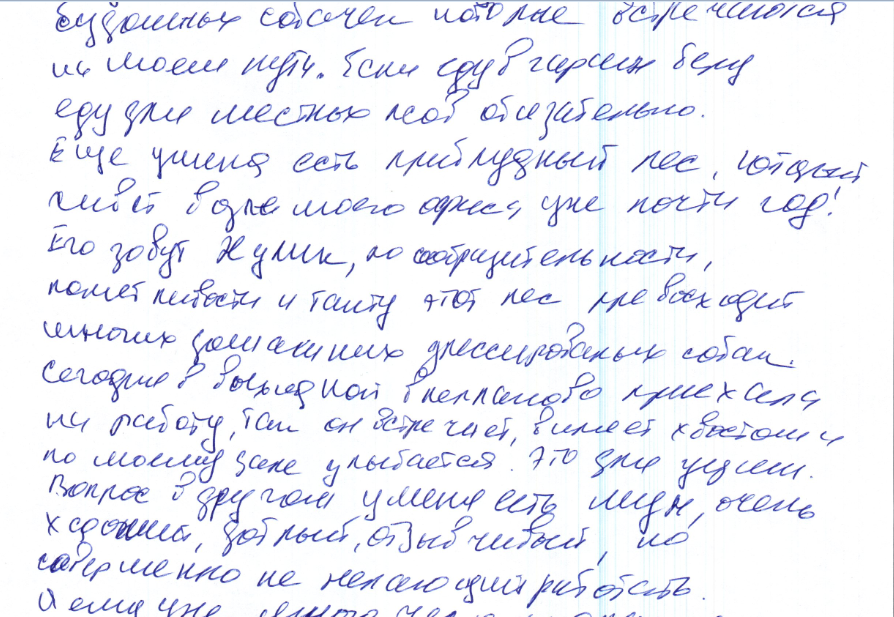 бездомных собачек которые встречаются
на моем пути. Если еду в гараж беру
еду для местных псов обязательно.
Еще у меня есть приблудный пес, который
живет возле моего офиса уже почти год!
Его зовут Жулик, по сообразительности,
понятливости и такту этот пес превосходит
многих домашних дрессированых собак.
Сегодня в выходной внепланово приехала
на работу, так он встречает, виляет хвостом и
по моему даже улыбается. Это для души.
Вопрос в другом у меня есть муж, очень
хороший, добрый, отзывчивый, но
совершенно не желающий работать.
А ему уже